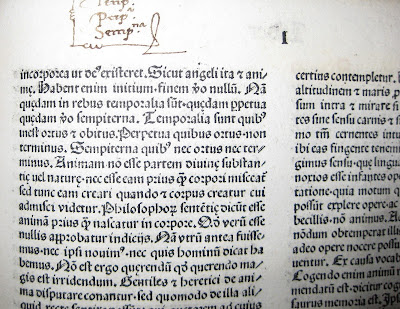 Temp̄
Perp̄
Semp̄na
I
incorporea ut deꝰ existeret. Sicut angeli ita ⁊ ani⸗
mę. Habent enim initium finem ꝟo nullū. Nā
quędam in rebus temporalia sūt·quędam ꝑpetua
quędam ꝟo sempiterna. Temporalia sunt quibꝰ
inest ortus ⁊ obitus. Perpetua quibus ortus·non
terminus. Sempiterna quibꝰ nec ortus nec ter⸗
minus. Animam nō esse partem diuinę substan⸗
tię uel nature·nec esse eam prius q̄ꝫ corpori misceat̄
sed tunc eam creari quando ⁊ corpus creatur cui
admisceri videtur. Philosophoꝝ sentētię dicūt esse
animā priusq̄ꝫ nascatur in corpore. Qđ verū esse
nullis approbatur indicijs. Nā vtrū antea fuisse⸗
mus·nec ipsi nouimꝰ·nec quis hominū dicat ha
bemus. Nō est ergo querendū qđ querendo ma⸗
gis est irridendum. Gentiles ⁊ heretici de ani⸗
ma disputare conantur·sed quomodo de illa ali⸗
certius contempletur.
altitudinem ⁊ maris p
sum intra ⁊ mirare si
tes sine sensu carnis ⁊
mo tm̄ cernentes intu
ibi eas fingente tenem
gimus sensu·que lingua
nioris esse infantes ope
tatione·quia motum q
possūt explere opere·ac
becillis nō animus. A
nōdum obtemperat ill
adeo opere nocere possu
uentur. Ex causa vocab
Cogendo enim animū
mendatū est·dicitur cogi
saurus memoria est. Ips